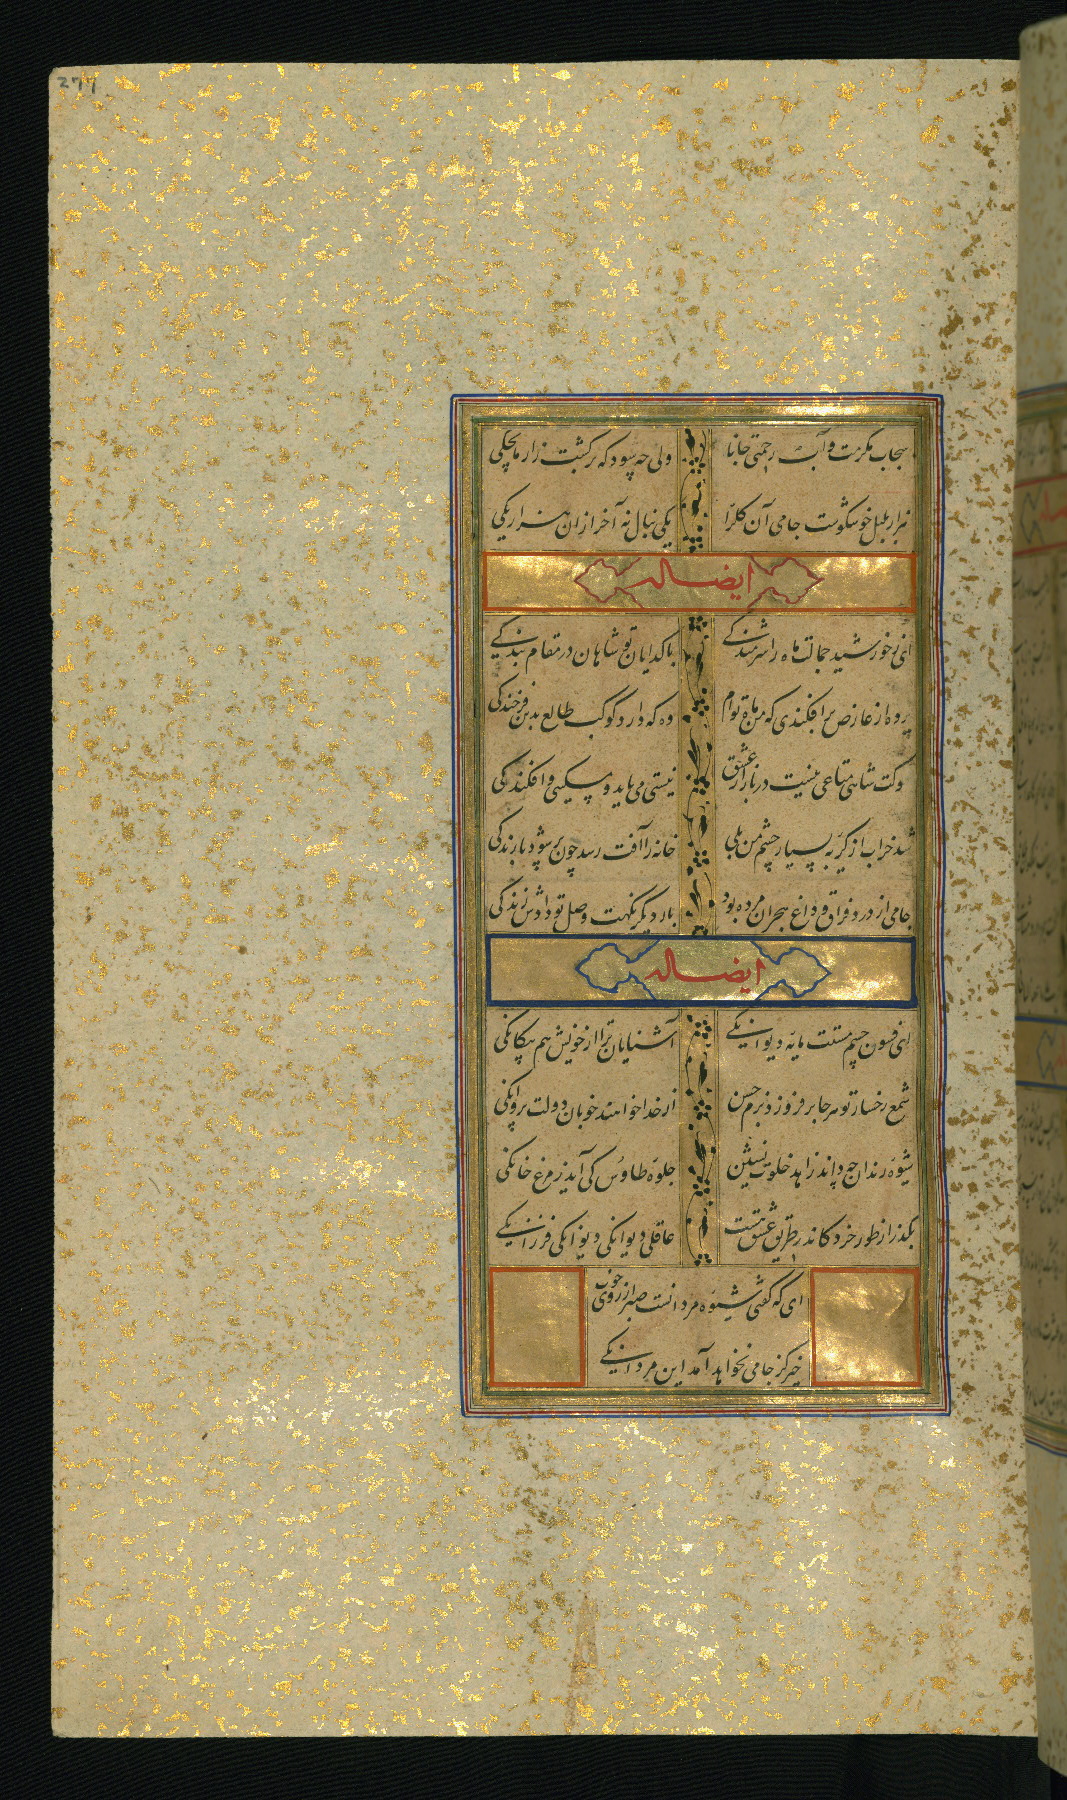 277
سحاب مکرمت و آب رحمتی جانا ولی چه سود که بر کشت زار ما نچکی
هزار بلبل خوشگوست جامی آن گل را یکی بنال نه آخر از ان هزار یکی
ایضا له
ای ز خورشید جمالت ماه را شرمندگی با گدایان تو شاهان در مقام بندگی
پرده از عارض برافکندی که من ماه توام وه که دارد کوکب طالع بدین فرخندگی
وکت شاهی متاعی نیست در بازار عشق نیستی می باید و مسکینی و افکندگی
شد خراب از گریه بسیار چشم من بلی خانه را آفت رسد چون پر شود بارندگی
جامی از درد فراق و داغ هجران مرده بود بار دیگر نکهت وصل تو دادش زندگی
ایضا له
ای فسون چشم مستت مایه دیوانگی آشنایان ترا از خویش هم بیگانگی
شمع رخسار تو هر جا برفروزد بزم حسن از خدا خواهند خوبان دولت پروانگی
شیوه رندان چه داند زاهد خلوت نشین جلوه طاوس کی آید ز مرغ خانگی
بگذر از طور خرد کاندر طریق عشق هست عاقلی دیوانگی دیوانگی فرزانگی
ای که گفتی شیوه مردانست صبر از روی خوب
خیز کز جامی نخواهد آمد این مردانگی